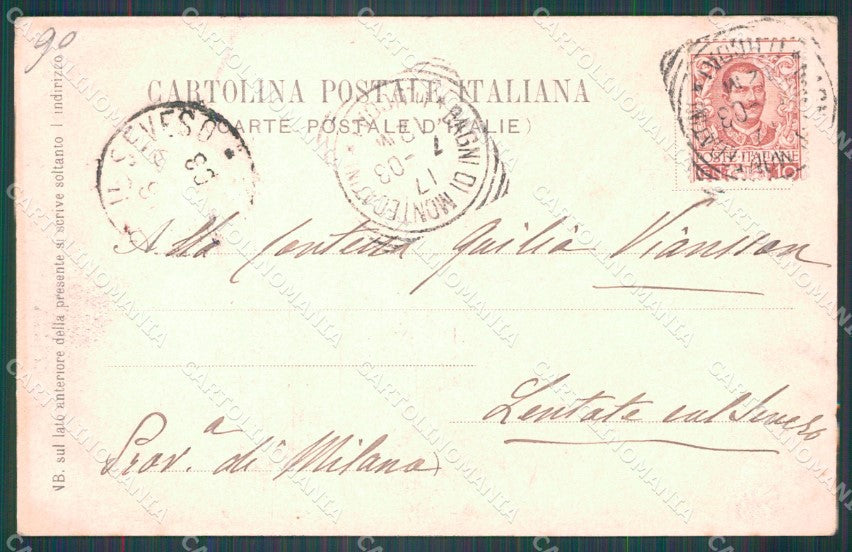 90
CARTOLINA POSTALE ITALIANA
(CARTE POSTALE D'ITALIE)
NB. sul lato anteriore della presente si scrive soltanto l'indirizzo
SEVESO
BAGNI DI MONTECATINI
17
7
03
POSTE ITALIANE
Alla Contessa Giulia Viansson
Lentate sul Seveso
Prov.a di Milano
CARTOLINOMANIA